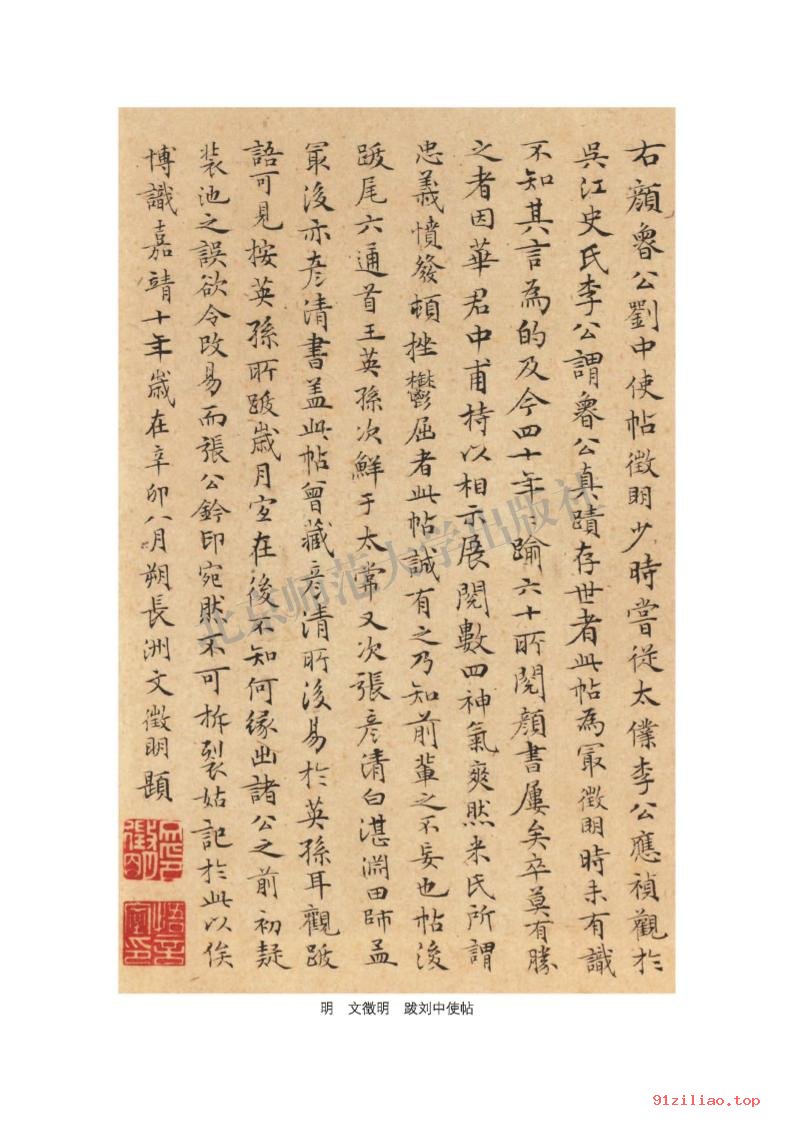 右顏魯公劉中使帖徵明少時嘗從太僕李公應禎觀於
吳江史氏李公謂魯公真蹟存世者此帖為冣徵明時未有識
不知其言為的及今四十年年踰六十所閱顏書屢矣卒莫有勝
之者因華君中甫持以相示展閱數四神氣爽然米氏所謂
忠義憤發頓挫鬱屈者此帖誠有之乃知前輩之不妄也帖後
跋尾六通首王英孫次鮮于太常又次張彥清白湛淵田師孟
冣後亦彥清書蓋此帖曾藏彥清所後易於英孫耳觀跋
語可見按英孫所跋歲月宜在後不知何緣出諸公之前初疑
裝池之誤欲令改易而張公鈐印宛然不可拆裂姑記於此以俟
博識嘉靖十年歲在辛卯八月朔長洲文徵明題
徵明印
悟言室印
北京师范大学出版社
明 文徵明 跋刘中使帖
91ziliao.top